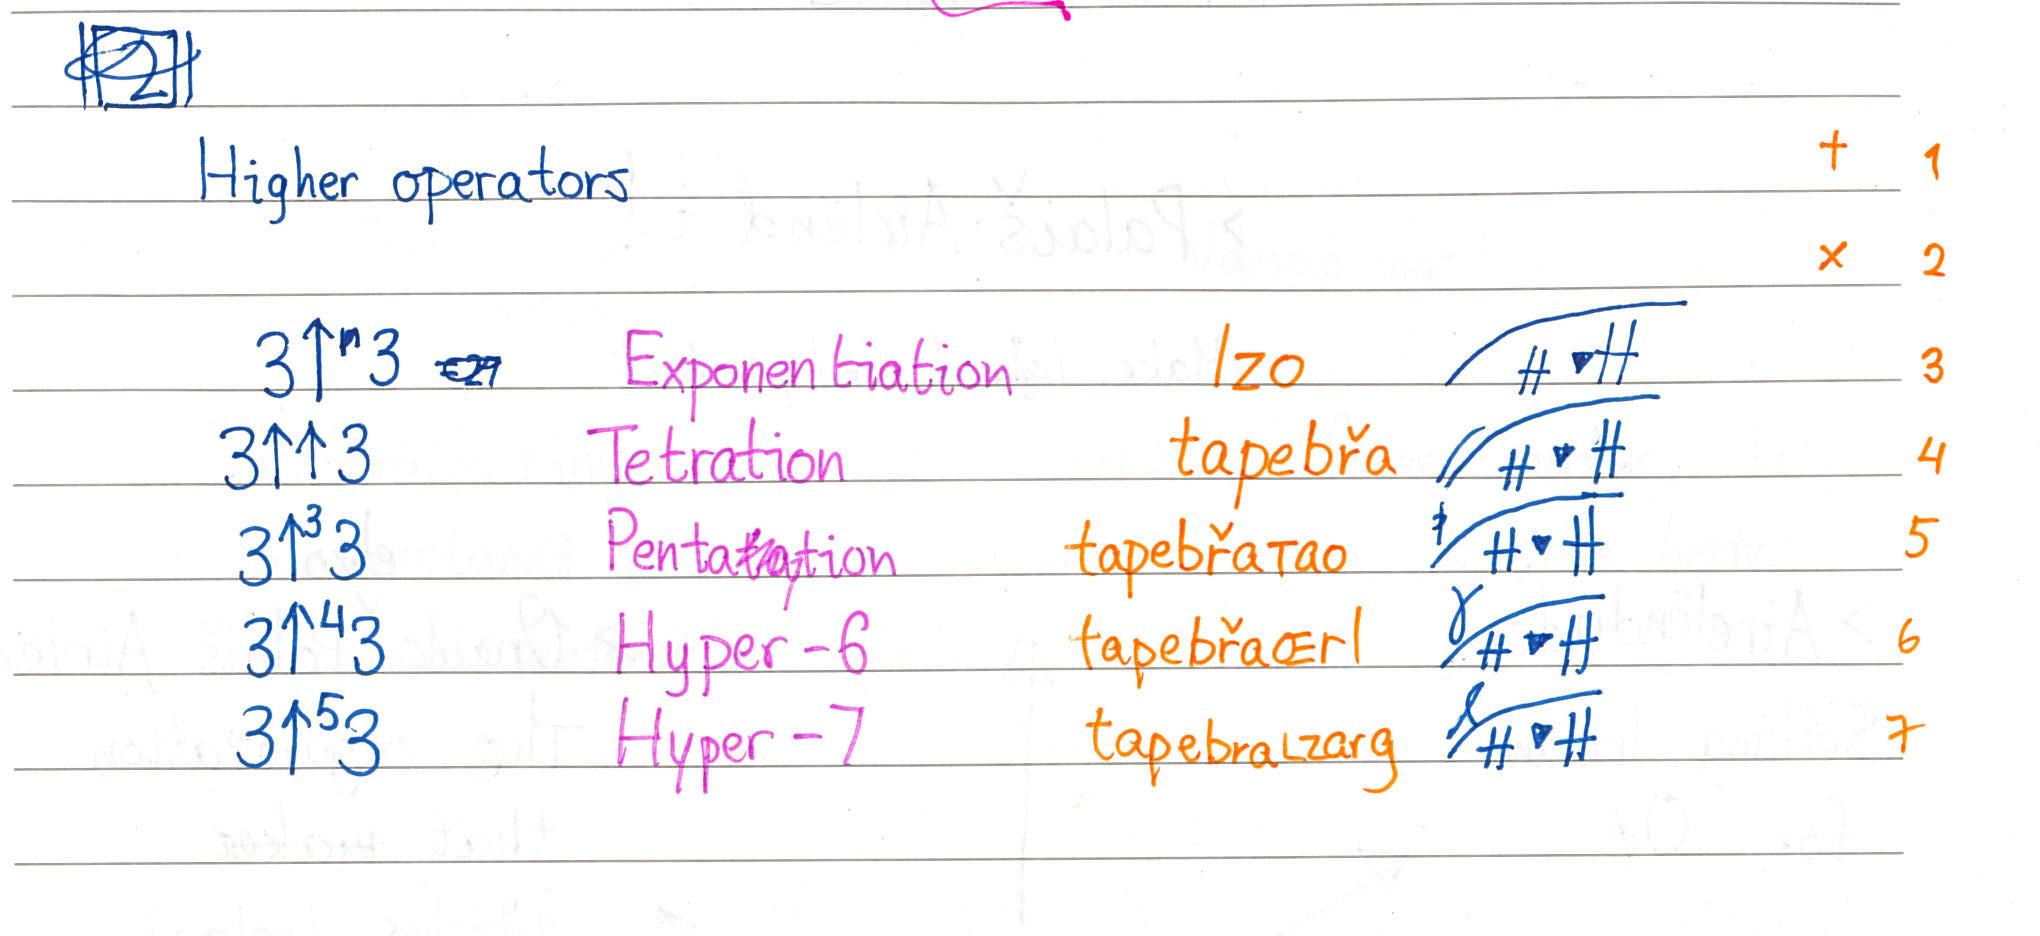 2
Higher operators + 1
× 2
3↑ⁿ3 Exponentiation Izo # ▾ H 3
3↑↑3 Tetration tapebřa # ▾ H 4
3↑³3 Pentation tapebřaтao # ▾ H 5
3↑⁴3 Hyper-6 tapebřaŒrl # ▾ H 6
3↑⁵3 Hyper-7 tapebraLzarg # ▾ H 7